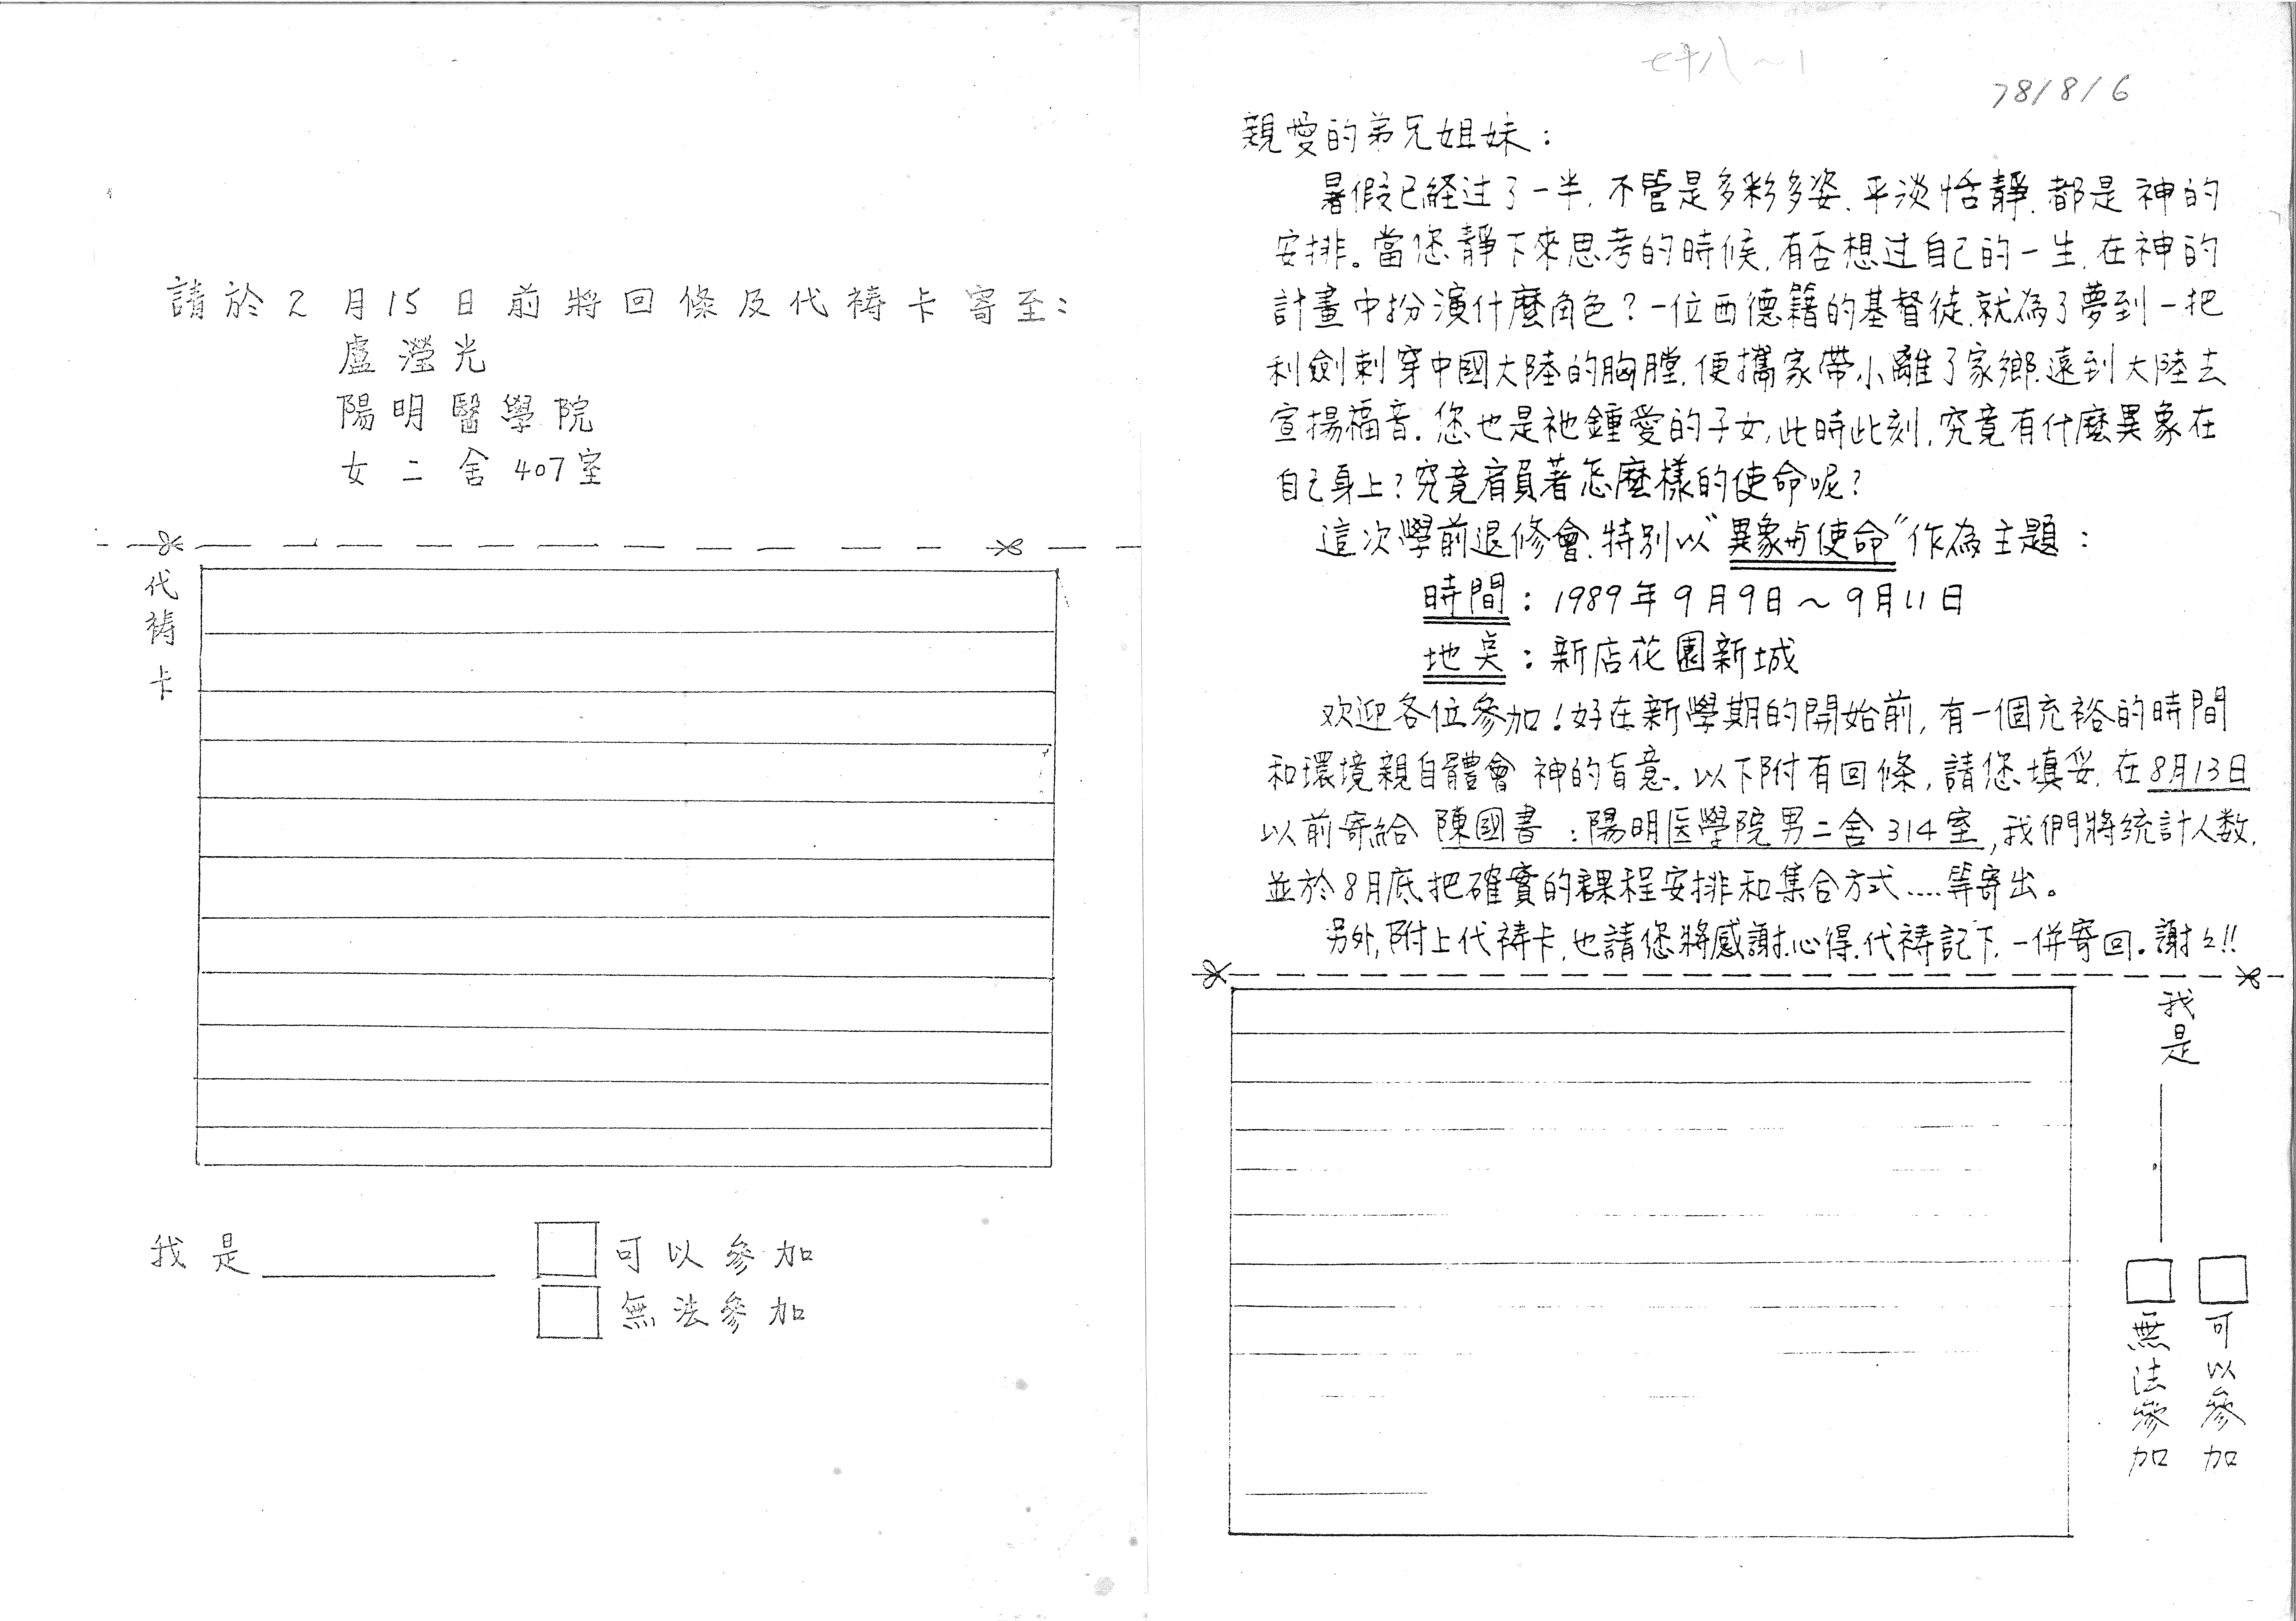 請於2月15日前將回條及代禱卡寄至:
盧瀅光
陽明醫學院
女二舍407室
代禱卡
我是
可以參加
無法參加
七十八~1
78/8/6
親愛的弟兄姐妹:
暑假已経过了一半,不管是多彩多姿、平淡恬靜,都是 神的
安排。當您靜下來思考的時候,有否想过自己的一生,在神的
計畫中扮演什麼角色?一位西德籍的基督徒,就為了夢到一把
利劍刺穿中國大陸的胸膛,便攜家帶小離了家鄉,遠到大陸去
宣揚福音。您也是祂鍾愛的子女,此時此刻,究竟有什麼異象在
自己身上?究竟肩負著怎麼樣的使命呢?
這次學前退修會,特別以"異象与使命"作為主題:
時間:1989年9月9日~9月11日
地奌:新店花園新城
欢迎各位參加!好在新學期的開始前,有一個充裕的時間
和環境親自體會 神的旨意。以下附有回條,請您填妥,在8月13日
以前寄給 陳國書:陽明医學院男二舍314室,我們將統計人数,
並於8月底把確實的課程安排和集合方式....等寄出。
另外,附上代禱卡,也請您將感謝、心得、代禱記下,一併寄回。謝々!!
我是
可以參加
無法參加